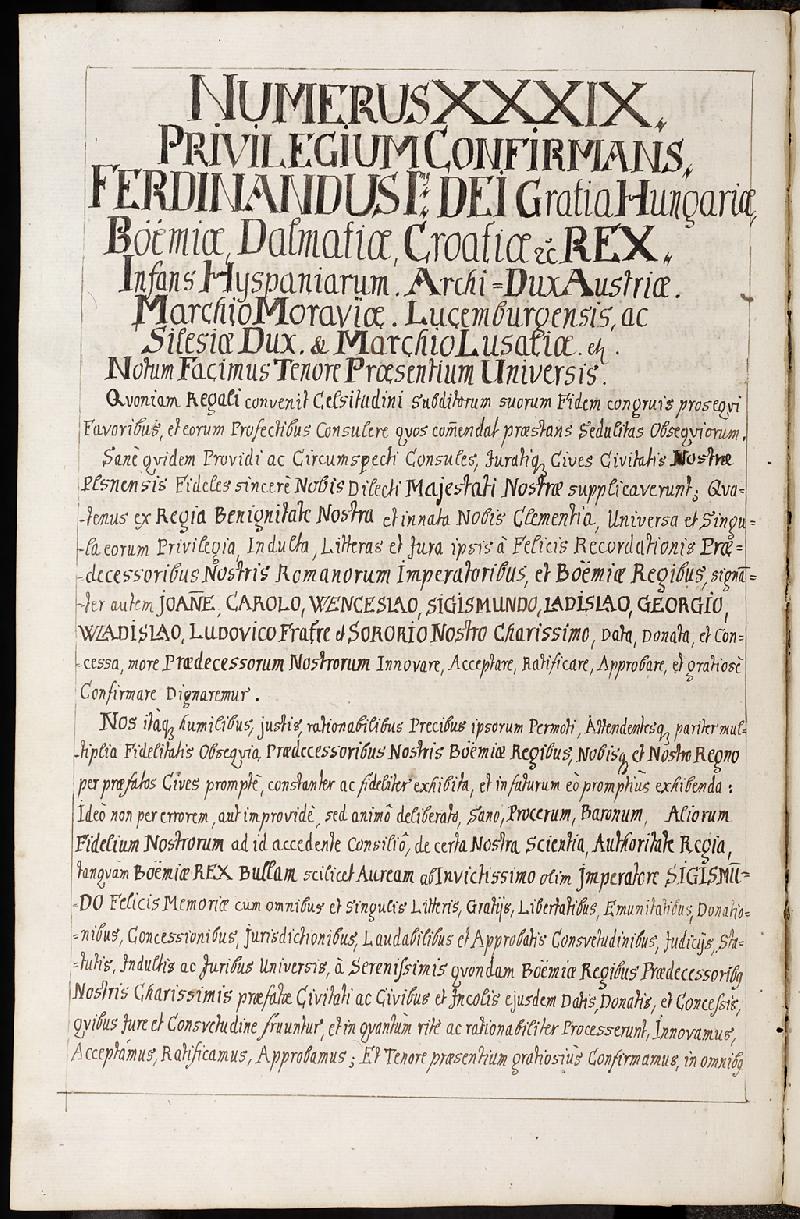 NUMERUS XXXIX.
PRIVILEGIUM CONFIRMANS.
FERDINANDUS I.mus DEI Gratia Hungariæ,
Böëmiæ, Dalmatiæ, Croatiæ &c REX.
Infans Hyspaniarum. Archi=Dux Austriæ.
Marchio Moraviæ. Lucemburgensis, ac
Silesiæ Dux. & Marchio Lusatiæ. etc.
Notum Facimus Tenore Præsentium Universis.
Qvoniam Regali convenit Celsitudini Subditorum suorum Fidem congruis proseqvi
Favoribus, et eorum Profectibus Consulere qvos com̄endat præstans Sedulitas Obseqviorum.
Sanè qvidem Providi ac Circumspecti Consules, Juratiq, Cives Civitatis Nostræ
Plsnensis Fideles sincerè Nobis Dilecti Majestati Nostræ supplicaverunt; Qva-
-tenus ex Regia Benignitate Nostra et innata Nobis Clementia, Universa et Singu=
-la eorum Privilegia, Indulta, Litteras et Jura ipsis â Felicis Recordationis Præ=
-decessoribus Nostris Romanorum Imperatoribus, et Boëmiæ Regibus, signā=
-ter autem JOAN̄E, CAROLO, WENCESLAO, SIGISMUNDO, LADISLAO, GEORGIO,
WLADISLAO, LUDOVICO Fratre et SORORIO Nostro Charissimo, Data, Donata, et Con-
-cessa, more Prædecessorum Nostrorum Innovare, Acceptare, Ratificare, Approbare, et gratiosè
Confirmare Dignaremur.
Nos itaq, humilibus, justis, rationabilibus Precibus ipsorum Permoti, Attendentesq, pariter mul=
-tiplia Fidelitatis Obseqvia Prædecessoribus Nostris Boëmiæ Regibus, Nobisq, et Nostro Regno
per præfatos Cives promptè, constanter ac fideliter exhibita, et in futurum eò promptiùs exhibenda:
Ideò non per errorem, aut improvidè, sed animô deliberato, Sano, Procerum, Baronum, Aliorum
Fidelium Nostrorum ad id accedente Consiliô, de certa Nostra Scientia, Authoritate Regia,
tanqvam Boëmiæ REX Bullam scilicet Auream ab Invictissimo olim Imperatore SIGISMŪ=
-DO Felicis Memoriæ cum omnibus et Singulis Litteris, Gratijs, Libertatibus, Emunitatibus, Donatio=
=nibus, Concessionibus, Jurisdictionibus, Laudabilibus et Approbatis Consvetudinibus, Judicijs, Sta=
-tutis, Indultis ac Juribus Universis, à Serenissimis qvondam Boëmiæ Regibus Prædecessoribq
Nostris Charissimis præfatæ Civitati ac Civibus et Incolis ejusdem Datis, Donatis, et Concessis,
qvibus Jure et Consvetudine fruuntur, et in qvantùm ritè ac rationabiliter Processerunt, Innovamus,
Acceptamus, Ratificamus, Approbamus; Et Tenore præsentium gratiosiùs Confirmamus, in omnibq